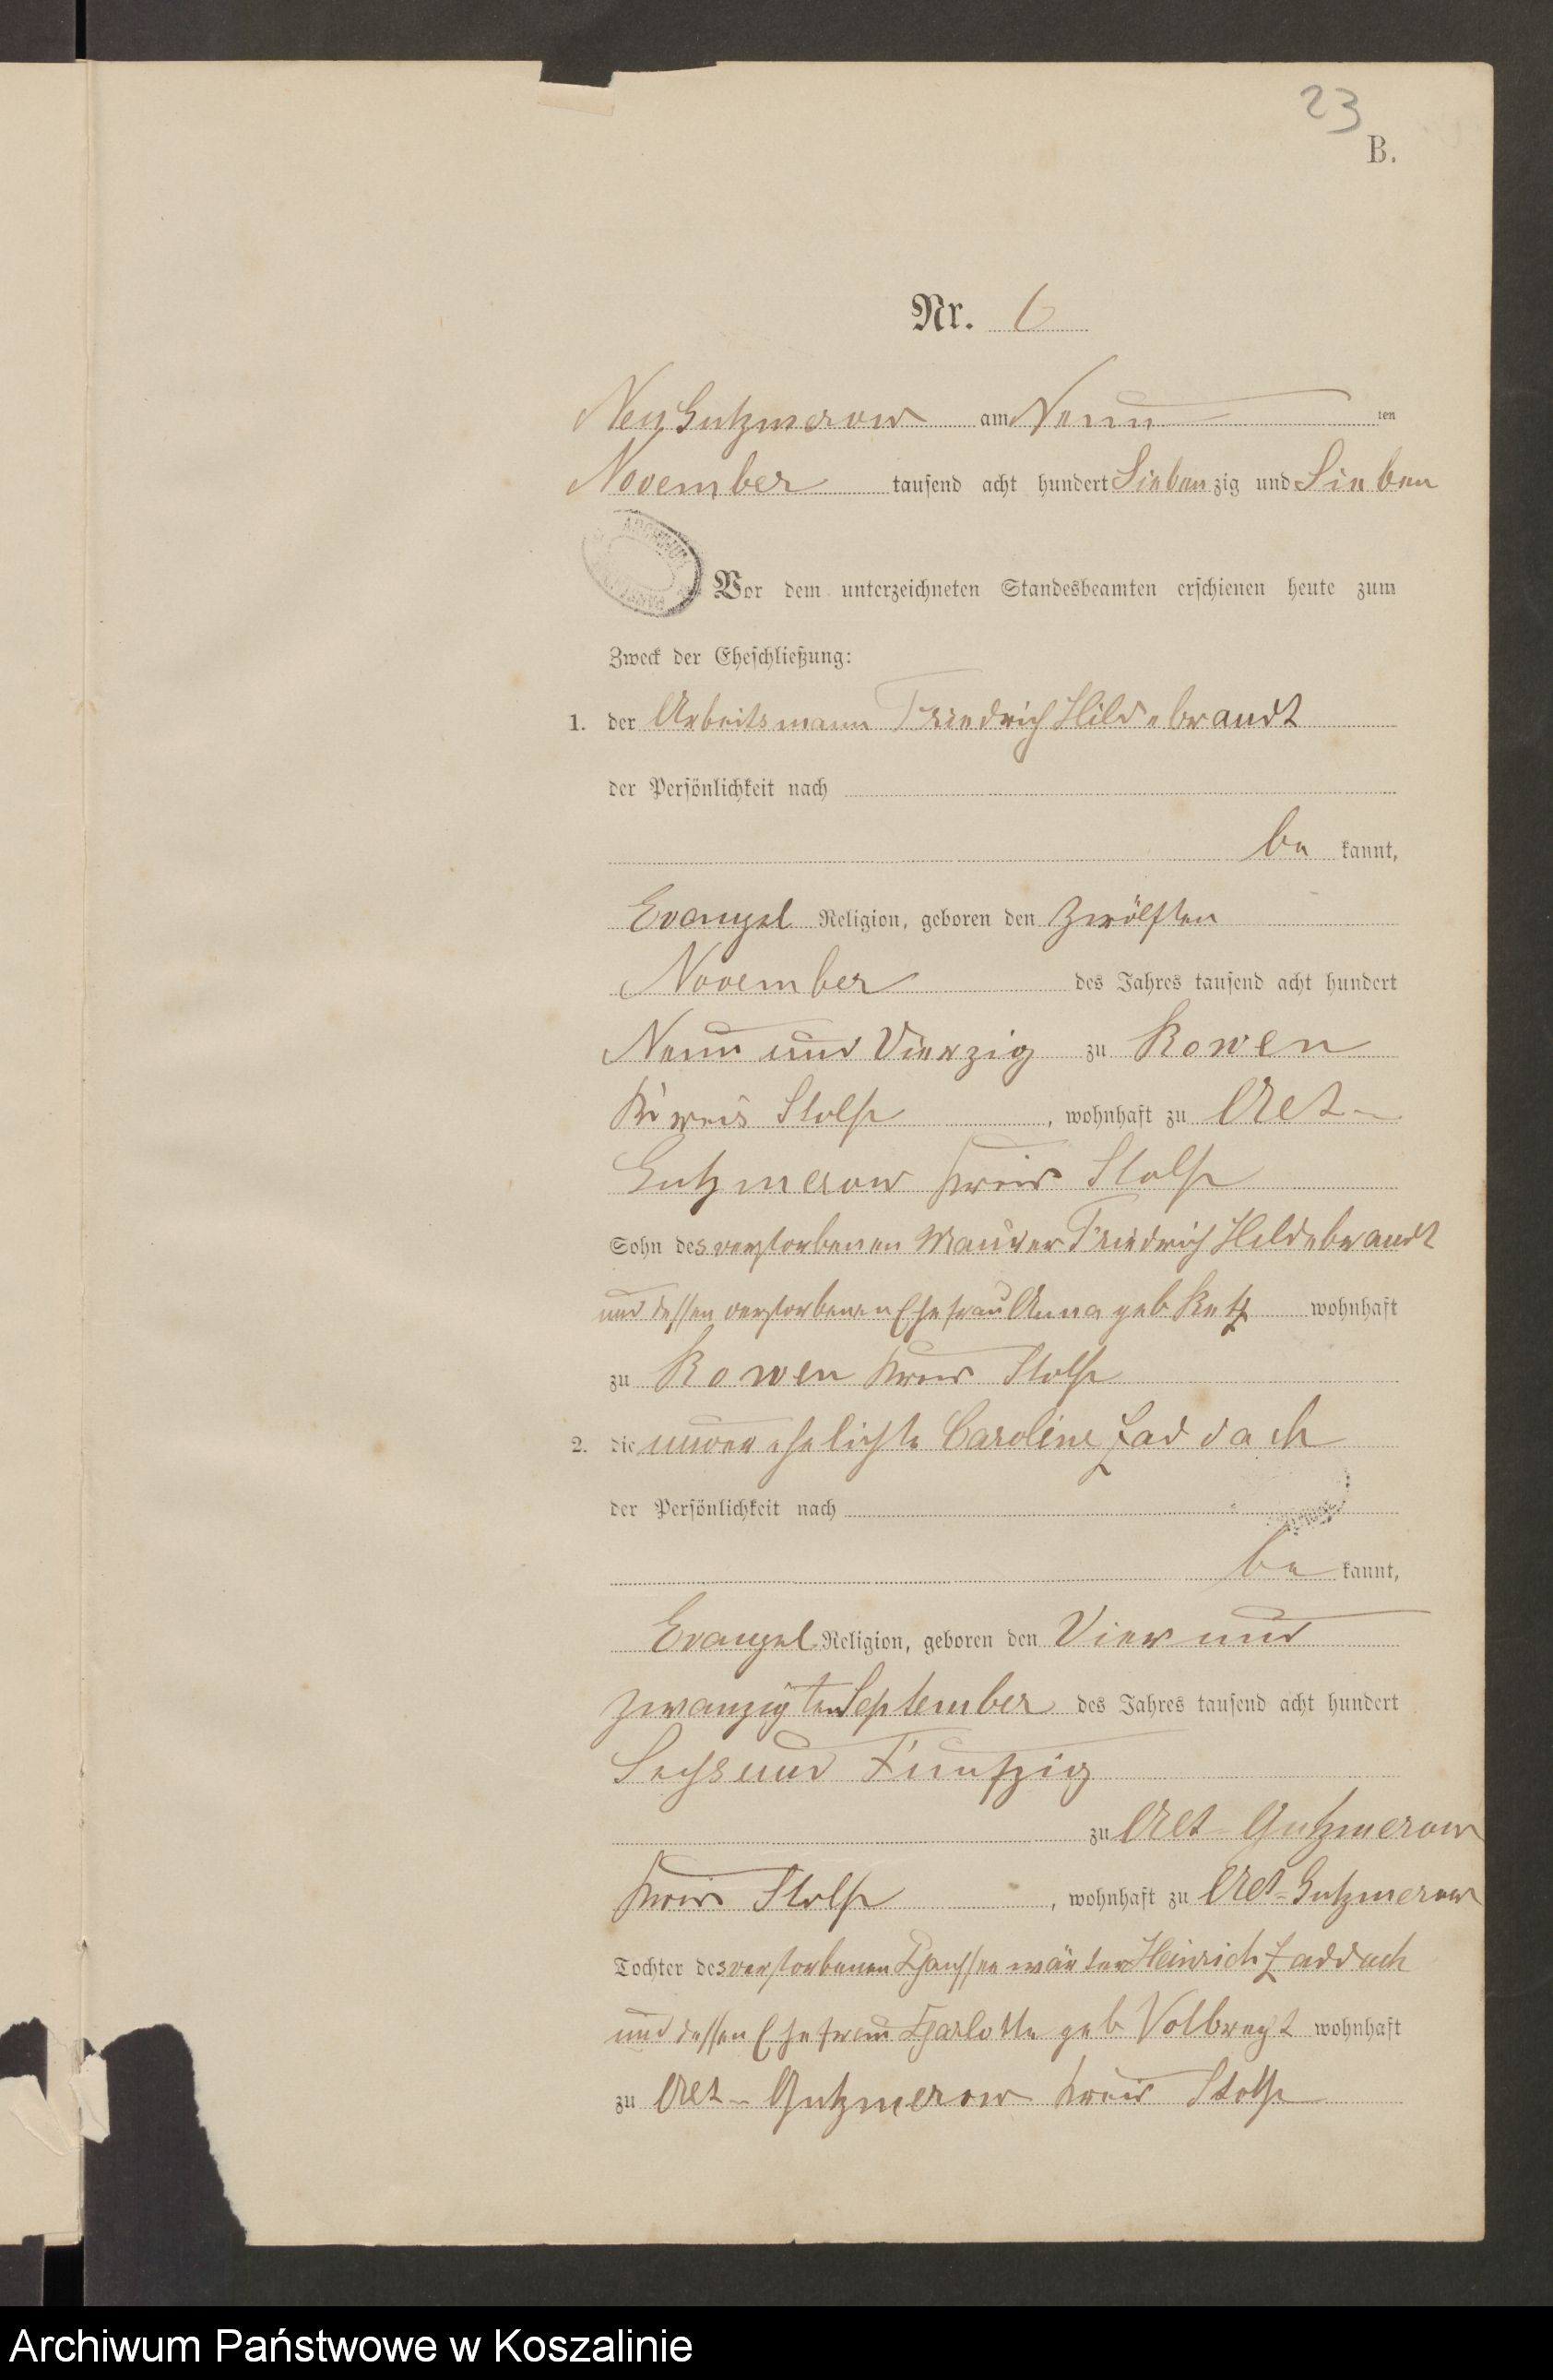 23
B.
Nr. 6
Neu Gutzmerow am Neun ten
November tausend acht hundert Siebenzig und Sieben
ARCHIWUM
Vor dem unterzeichneten Standesbeamten erschienen heute zum
Zweck der Eheschließung:
1. der Arbeitsmann Friedrich Hildebrandt
der Persönlichkeit nach
be kannt,
Evangel Religion, geboren den Zwölften
November des Jahres tausend acht hundert
Neun und Vierzig zu Rowen
Kreis Stolp, wohnhaft zu Alt-
Gutzmerow Kreis Stolp
Sohn des verstorbenen Maurer Friedrich Hildebrandt
und dessen verstorbenen Ehefrau Anna geb Retz wohnhaft
zu Rowen Kreis Stolp
2. die unverehelichte Caroline Zaddach
der Persönlichkeit nach
be kannt,
Evangel Religion, geboren den Vier und
zwanzigten September des Jahres tausend acht hundert
Sechs und Funfzig
zu Alt-Gutzmerow
Kreis Stolp, wohnhaft zu Alt-Gutzmerow
Tochter des verstorbenen Chausseewärter Heinrich Zaddach
und dessen Ehefrau Charlotte geb Vollbrecht wohnhaft
zu Alt-Gutzmerow Kreis Stolp
Archiwum Państwowe w Koszalinie